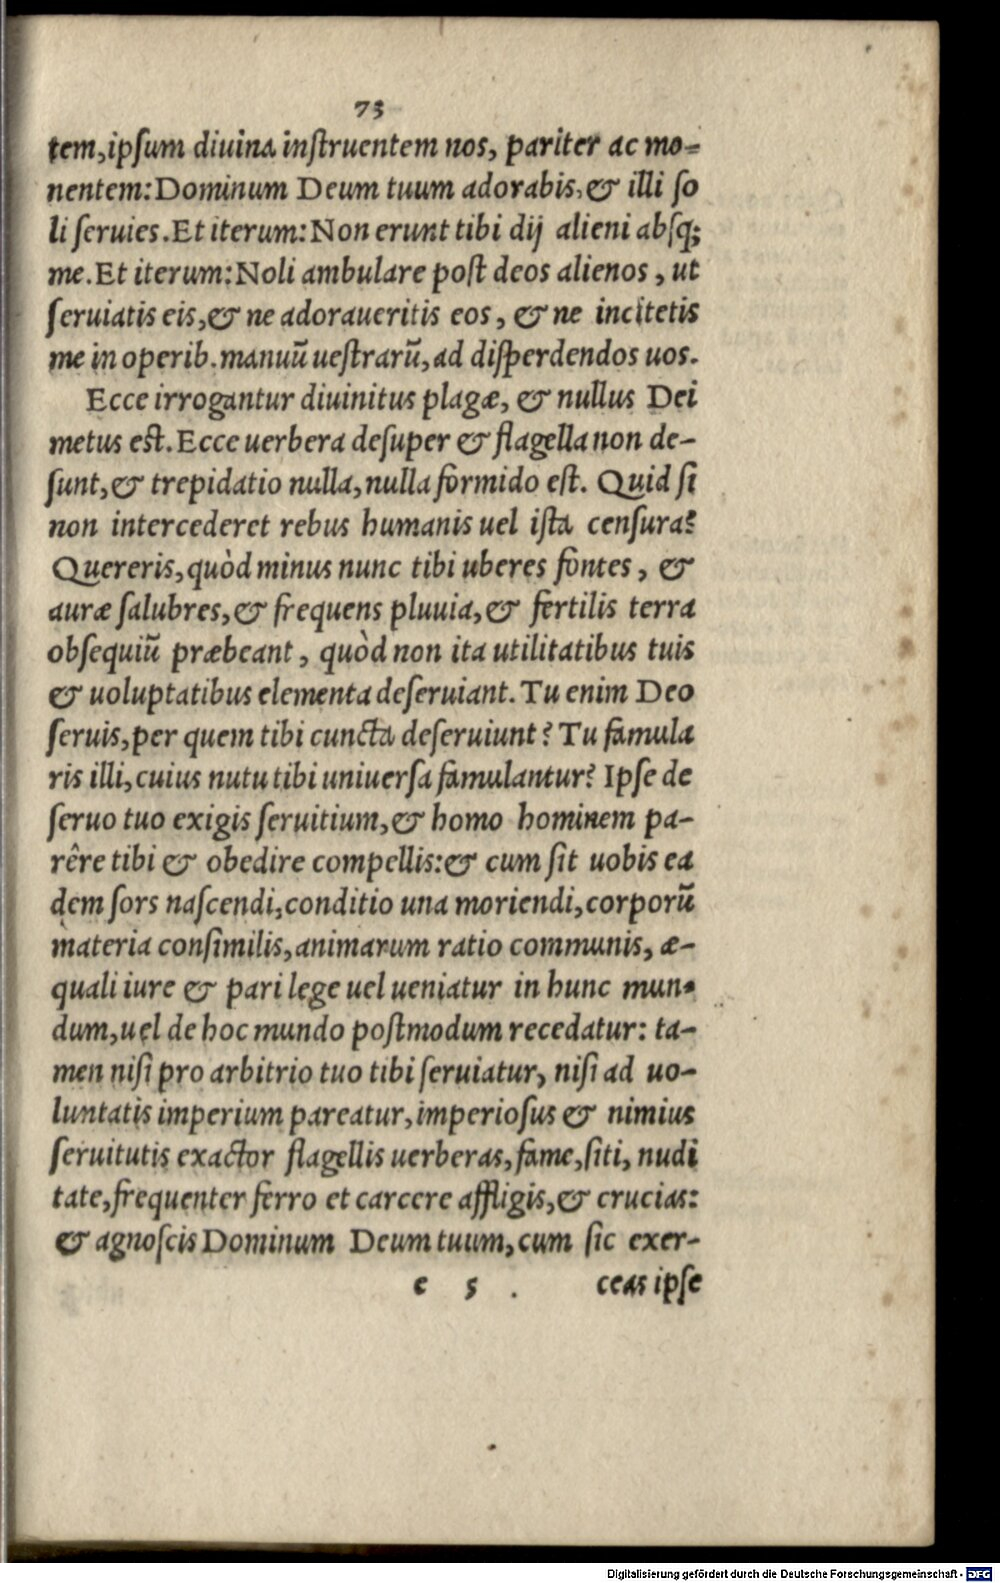 73
tem,ipſum diuina inſtruentem nos, pariter ac mo-
nentem:Dominum Deum tuum adorabis,& illi ſo
li ſeruies.Et iterum:Non erunt tibi dij alieni abſq;
me.Et iterum:Noli ambulare poſt deos alienos, ut
ſeruiatis eis,& ne adoraueritis eos, & ne incitetis
me in operib.manuũ ueſtrarũ,ad diſperdendos uos.
Ecce irrogantur diuinitus plagæ, & nullus Dei
metus eſt.Ecce uerbera deſuper & flagella non de-
ſunt,& trepidatio nulla,nulla formido eſt. Quid ſi
non intercederet rebus humanis uel iſta cenſura?
Quereris,quòd minus nunc tibi uberes fontes, &
auræ ſalubres,& frequens pluuia,& fertilis terra
obſequiũ præbeant, quòd non ita utilitatibus tuis
& uoluptatibus elementa deſeruiant.Tu enim Deo
ſeruis,per quem tibi cuncta deſeruiunt? Tu famula
ris illi,cuius nutu tibi uniuerſa famulantur? Ipſe de
ſeruo tuo exigis ſeruitium,& homo hominem pa-
rêre tibi & obedire compellis:& cum ſit uobis ea
dem ſors naſcendi,conditio una moriendi,corporũ
materia conſimilis,animarum ratio communis, æ-
quali iure & pari lege uel ueniatur in hunc mun-
dum,uel de hoc mundo poſtmodum recedatur: ta-
men niſi pro arbitrio tuo tibi ſeruiatur, niſi ad uo-
luntatis imperium pareatur,imperioſus & nimius
ſeruitutis exactor flagellis uerberas,fame,ſiti, nudi
tate,frequenter ferro et carcere affligis,& crucias:
& agnoſcis Dominum Deum tuum,cum ſic exer-
e 5 . ceas ipſe
Digitalisierung gefördert durch die Deutsche Forschungsgemeinschaft - DFG